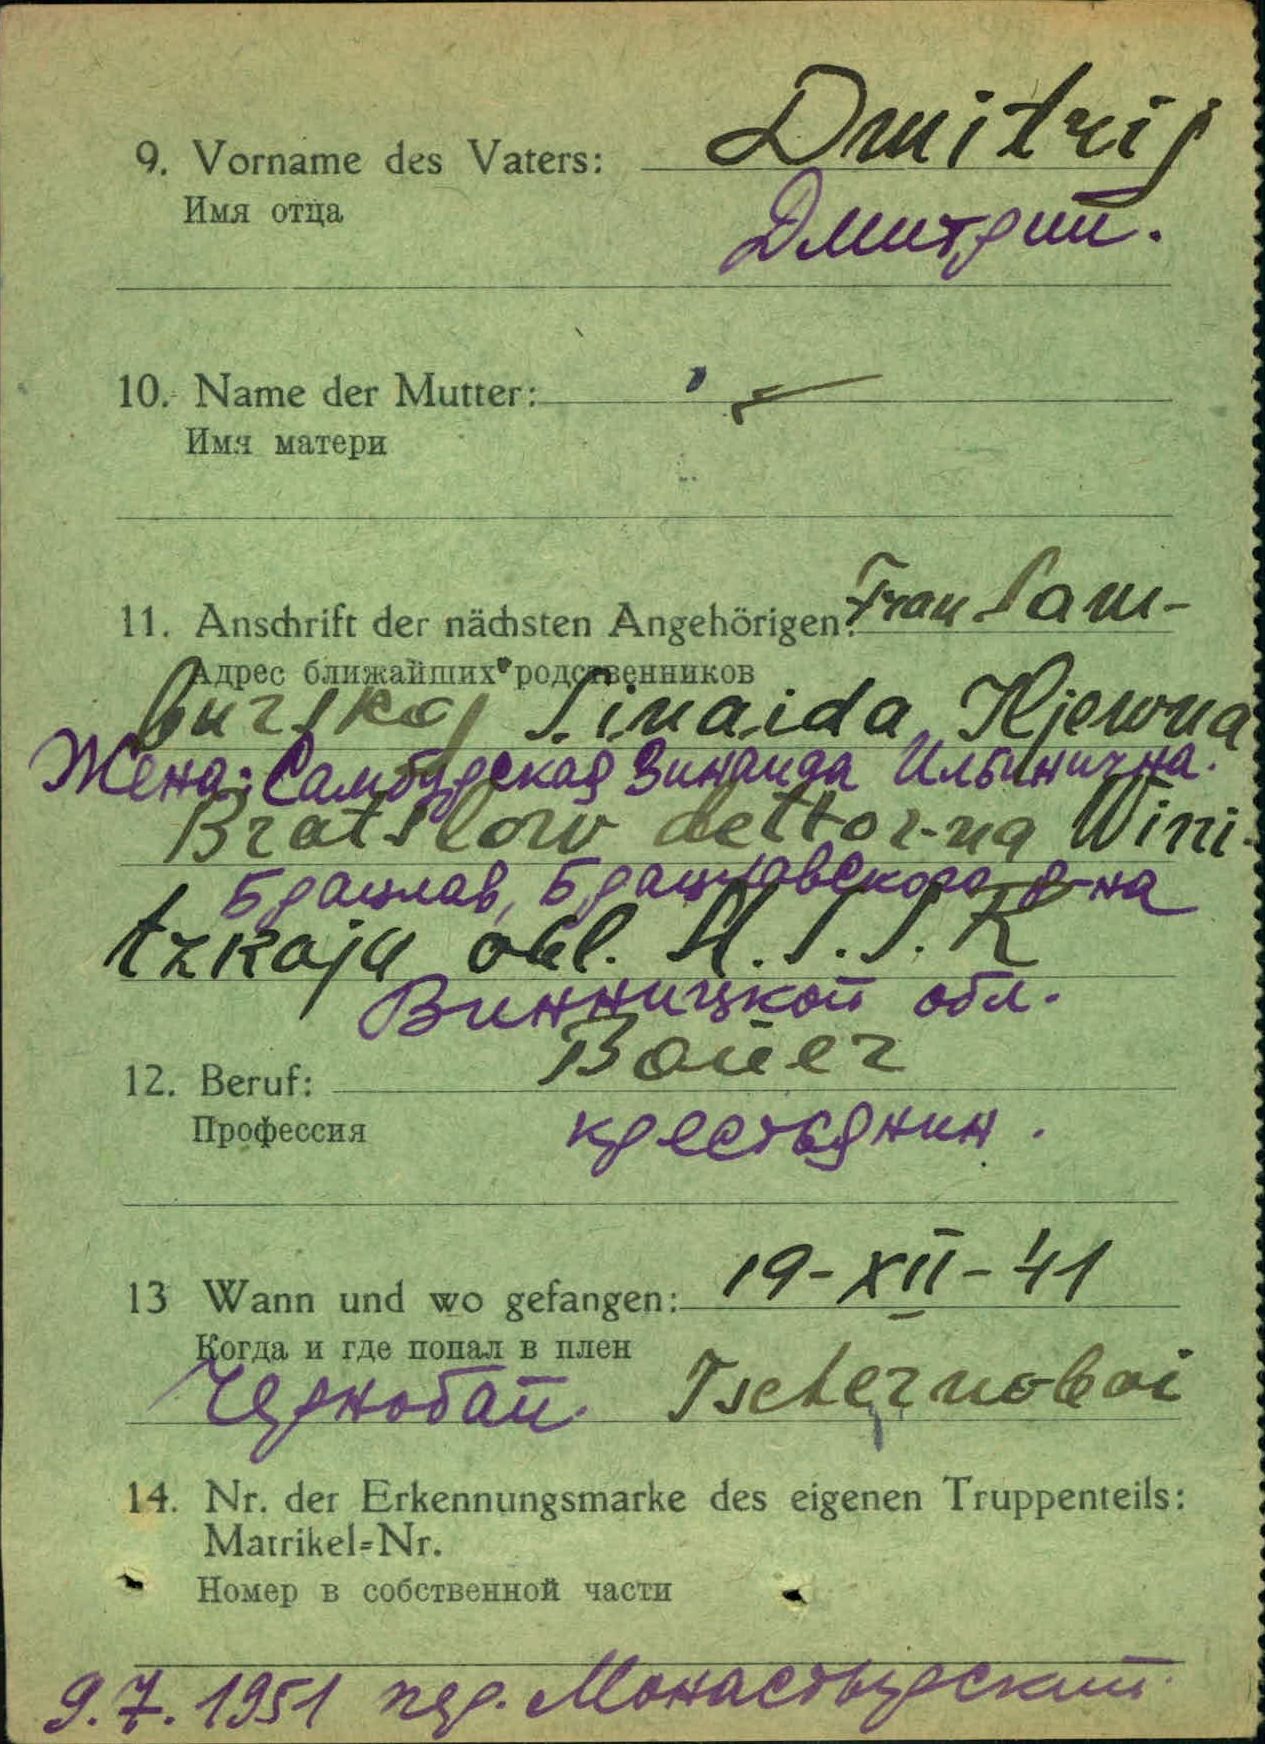 Dmitrij
9. Vorname des Vaters:
Имя отца
Дмитрий.
10. Name der Mutter:
Имя матери
11. Anschrift der nächsten Angehörigen: Frau Sam-
Адрес ближайших родственников
burskoj Sinaida Iljewna
Жена: Самбурская Зинаида Ильинична.
Bratslow Wini-
Брацлав, Брацлавского р-на
tzkaja obl. U.S.S.R
Винницкой обл.
Bauer
12. Beruf:
Профессия
крестьянин.
13 Wann und wo gefangen: 19-XII-41
Когда и где попал в плен
Чернобай. Tschernobai
14. Nr. der Erkennungsmarke des eigenen Truppenteils:
Matrikel=Nr.
Номер в собственной части
9.7.1951 пер. Монастырский